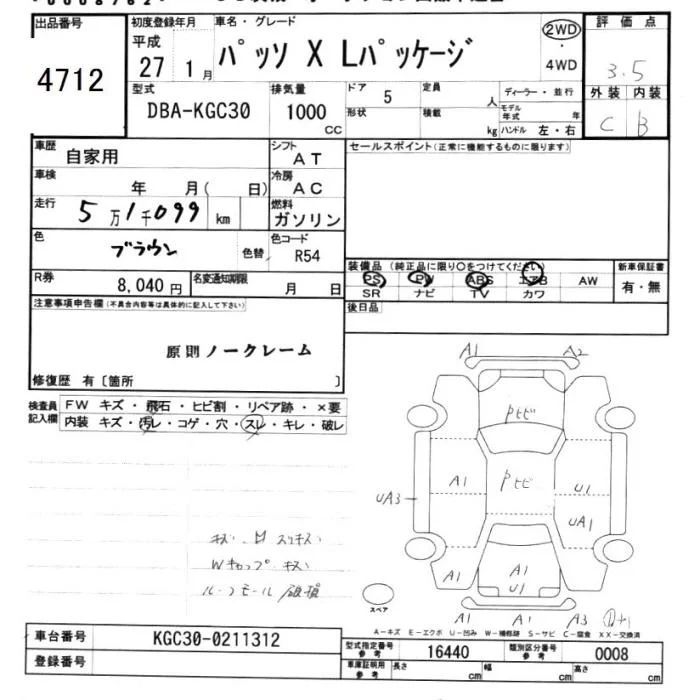 出品番号
4712
初度登録年月
平成
27 1月
車名・グレード
パッソ X Lパッケージ
2WD
・
4WD
評価点
3.5
外装 内装
C B
型式
DBA-KGC30
排気量
1000
CC
ドア
5
定員
人
形状
積載
kg
ディーラー・並行
モデル年式 年
ハンドル 左・右
車歴
自家用
シフト
AT
車検
年 月( 日)
冷房
AC
走行
5万1千099 km
燃料
ガソリン
色
ブラウン
色替
色コード
R54
R券
8,040円
名変通知期限
月 日
セールスポイント(正常に機能するものに限ります)
装備品 (純正品に限り○をつけてください)
PS PW ABS エアB AW
SR ナビ TV カワ
新車保証書
有・無
後日品
注意事項申告欄(不具合内容等は具体的に記入して下さい)
原則ノークレーム
修復歴 有〔箇所 〕
検査員
記入欄
FW キズ・飛石・ヒビ割・リペア跡・×要
内装 キズ・汚レ・コゲ・穴・スレ・キレ・破レ
Wキャップ キズ
ルーフモール 破損
A1 A2
Pヒビ
A1 Pヒビ U1
UA3 UA1
A1 A1 A1
U1
スペア
A1 A1 A3
A-キズ E-エクボ U-凹み W-補修跡 S-サビ C-腐食 XX-交換済
車台番号
KGC30-0211312
登録番号
型式指定番号
参考
16440
類別区分番号
参考
0008
車庫証明用
参考
長さ cm 幅 cm 高さ cm